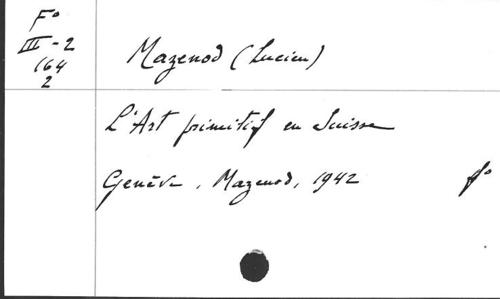 F°
III-2
164
2
Mazenod (Lucien)
L'Art primitif en Suisse
Genève, Mazenod, 1942 f°